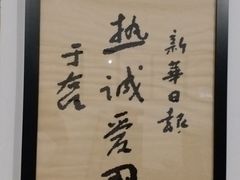 新華日報
热诚爱国
于